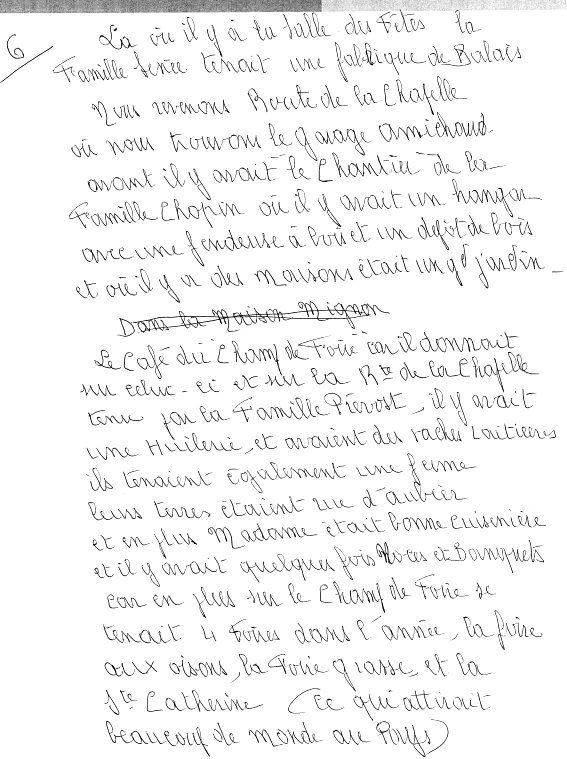 6
Là où il y a la salle des Fêtes la
Famille tenait une fabrique de Balais
Nous revenons Route de la Chapelle
où nous trouvons le garage Amichaud
avant il y avait le Chantier de la
Famille Chopin où il y avait un hangar
avec une fendeuse à bois et un depôt de bois
et où il y a des maisons était un gd jardin _
Dans la Maison Mignon
Le Café du Champ de Foire car il donnait
sur celui-ci et sur la Rte de la Chapelle
tenu par la Famille Prévost, il y avait
une Huilerie, et avaient des vaches Laitières
ils tenaient Egalement une ferme
leurs terres étaient rue d'aubier
et en plus Madame était bonne Cuisinière
et il y avait quelques fois Noces et Banquets
car en plus sur le Champ de Foire se
tenait 4 Foires dans l'année, la foire
aux oisons, la Foire grasse, et la
Ste Catherine (ce qui attirait
beaucoup de monde au Pays)